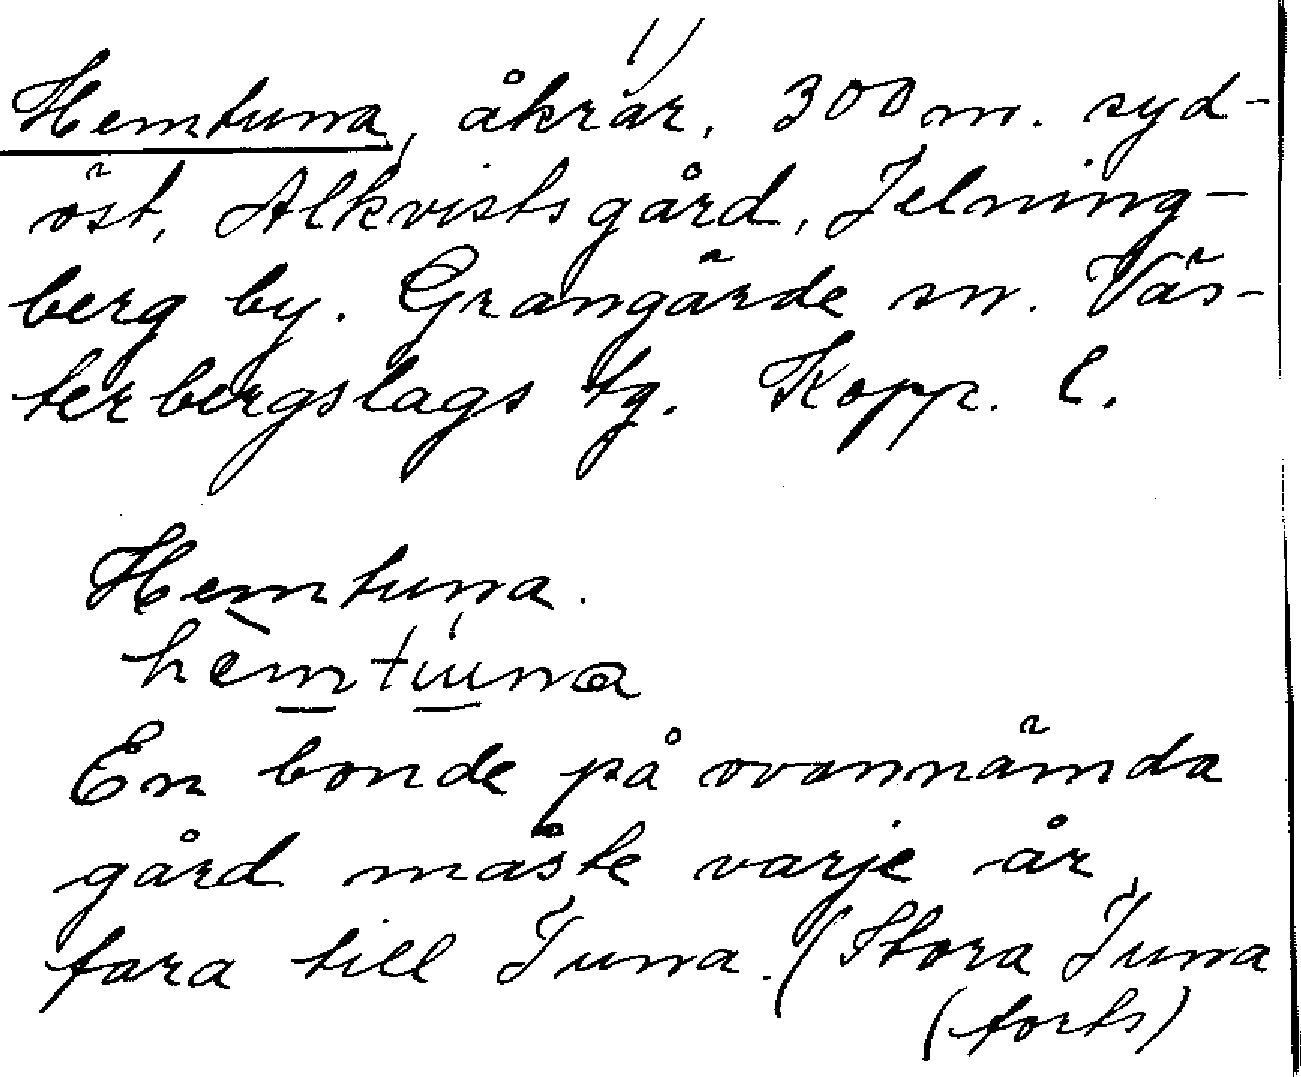 1)
Hemtuna, åkrar, 300 m. syd-
öst, Alkvistsgård, Jelning-
berg by. Grangärde sn. Väs-
terbergslags tg. Kopp. l.
Hemtuna.
hèmtuna
En bonde på ovannämda
gård måste varje år
fara till Tuna. (Stora Tuna
(forts)